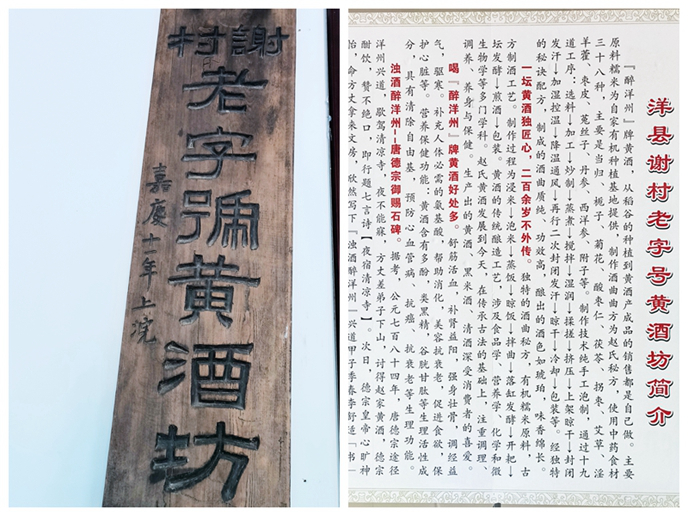 謝村
老字號黄酒坊
嘉慶十年上浣
洋县谢村老字号黄酒坊简介
『醉洋州』牌黄酒，从稻谷的种植到黄酒产成品的销售都是自己做。主要
原料糯米为自家有机种植基地提供，制作酒曲曲方为赵氏秘方，使用中药食材
三十八种，主要是当归、栀子、菊花、酸枣仁、茯苓、拐枣、艾草、淫
羊藿、枣皮、菟丝子、丹参、西洋参、附子等。制作技术纯手工泡制，通过十九
道工序：选料→加工→炒制→蒸煮→搅拌→湿润→揉搓→挤压→上架晾干→封闭
发汗→加湿控温→降温通风→再行二次封闭发汗→晾干→冷却→包装等。经独特
的秘诀配方，制成的酒曲质纯、功效高，酿出的酒色如琥珀，味香绵长。
一坛黄酒独匠心，二百余岁不外传。独特的酒曲秘方，有机糯米原料，古
方制酒工艺。制作过程为浸米→泡米→蒸饭→晾饭→拌曲→落缸发酵→开耙→
坛发酵→煎酒→包装。黄酒的传统酿造工艺，涉及食品学、营养学、化学和微
生物学等多门学科。赵氏黄酒发展到今天，在传承古法的基础上，注重调理、
调养、养身与保健。生产出的黄酒、黑米酒、清酒深受消费者的喜爱。
喝『醉洋州』牌黄酒好处多。舒筋活血，补肾益阳，强身壮骨，调经益
气，驱寒。补充人体必需的氨基酸，帮助消化，美容抗衰老，促进食欲，保
护心脏等。营养保健功能：黄酒含有多酚，类黑精，谷胱甘肽等生理活性成
分，具有清除自由基，预防心血管病、抗癌、抗衰老等生理功能。
浊酒醉洋州—唐德宗御赐石碑。据考，公元七百八十四年，唐德宗途径
洋州兴道，歇驾清凉寺，夜不能寐，方丈差弟子下山，讨得赵家黄酒，德宗
酣饮，赞不绝口，即行题七言诗【夜宿清凉寺】。次日，德宗皇帝心旷神
怡，命方丈拿来文房，欣然写下『浊酒醉洋州』兴道甲子季春李舒适『书